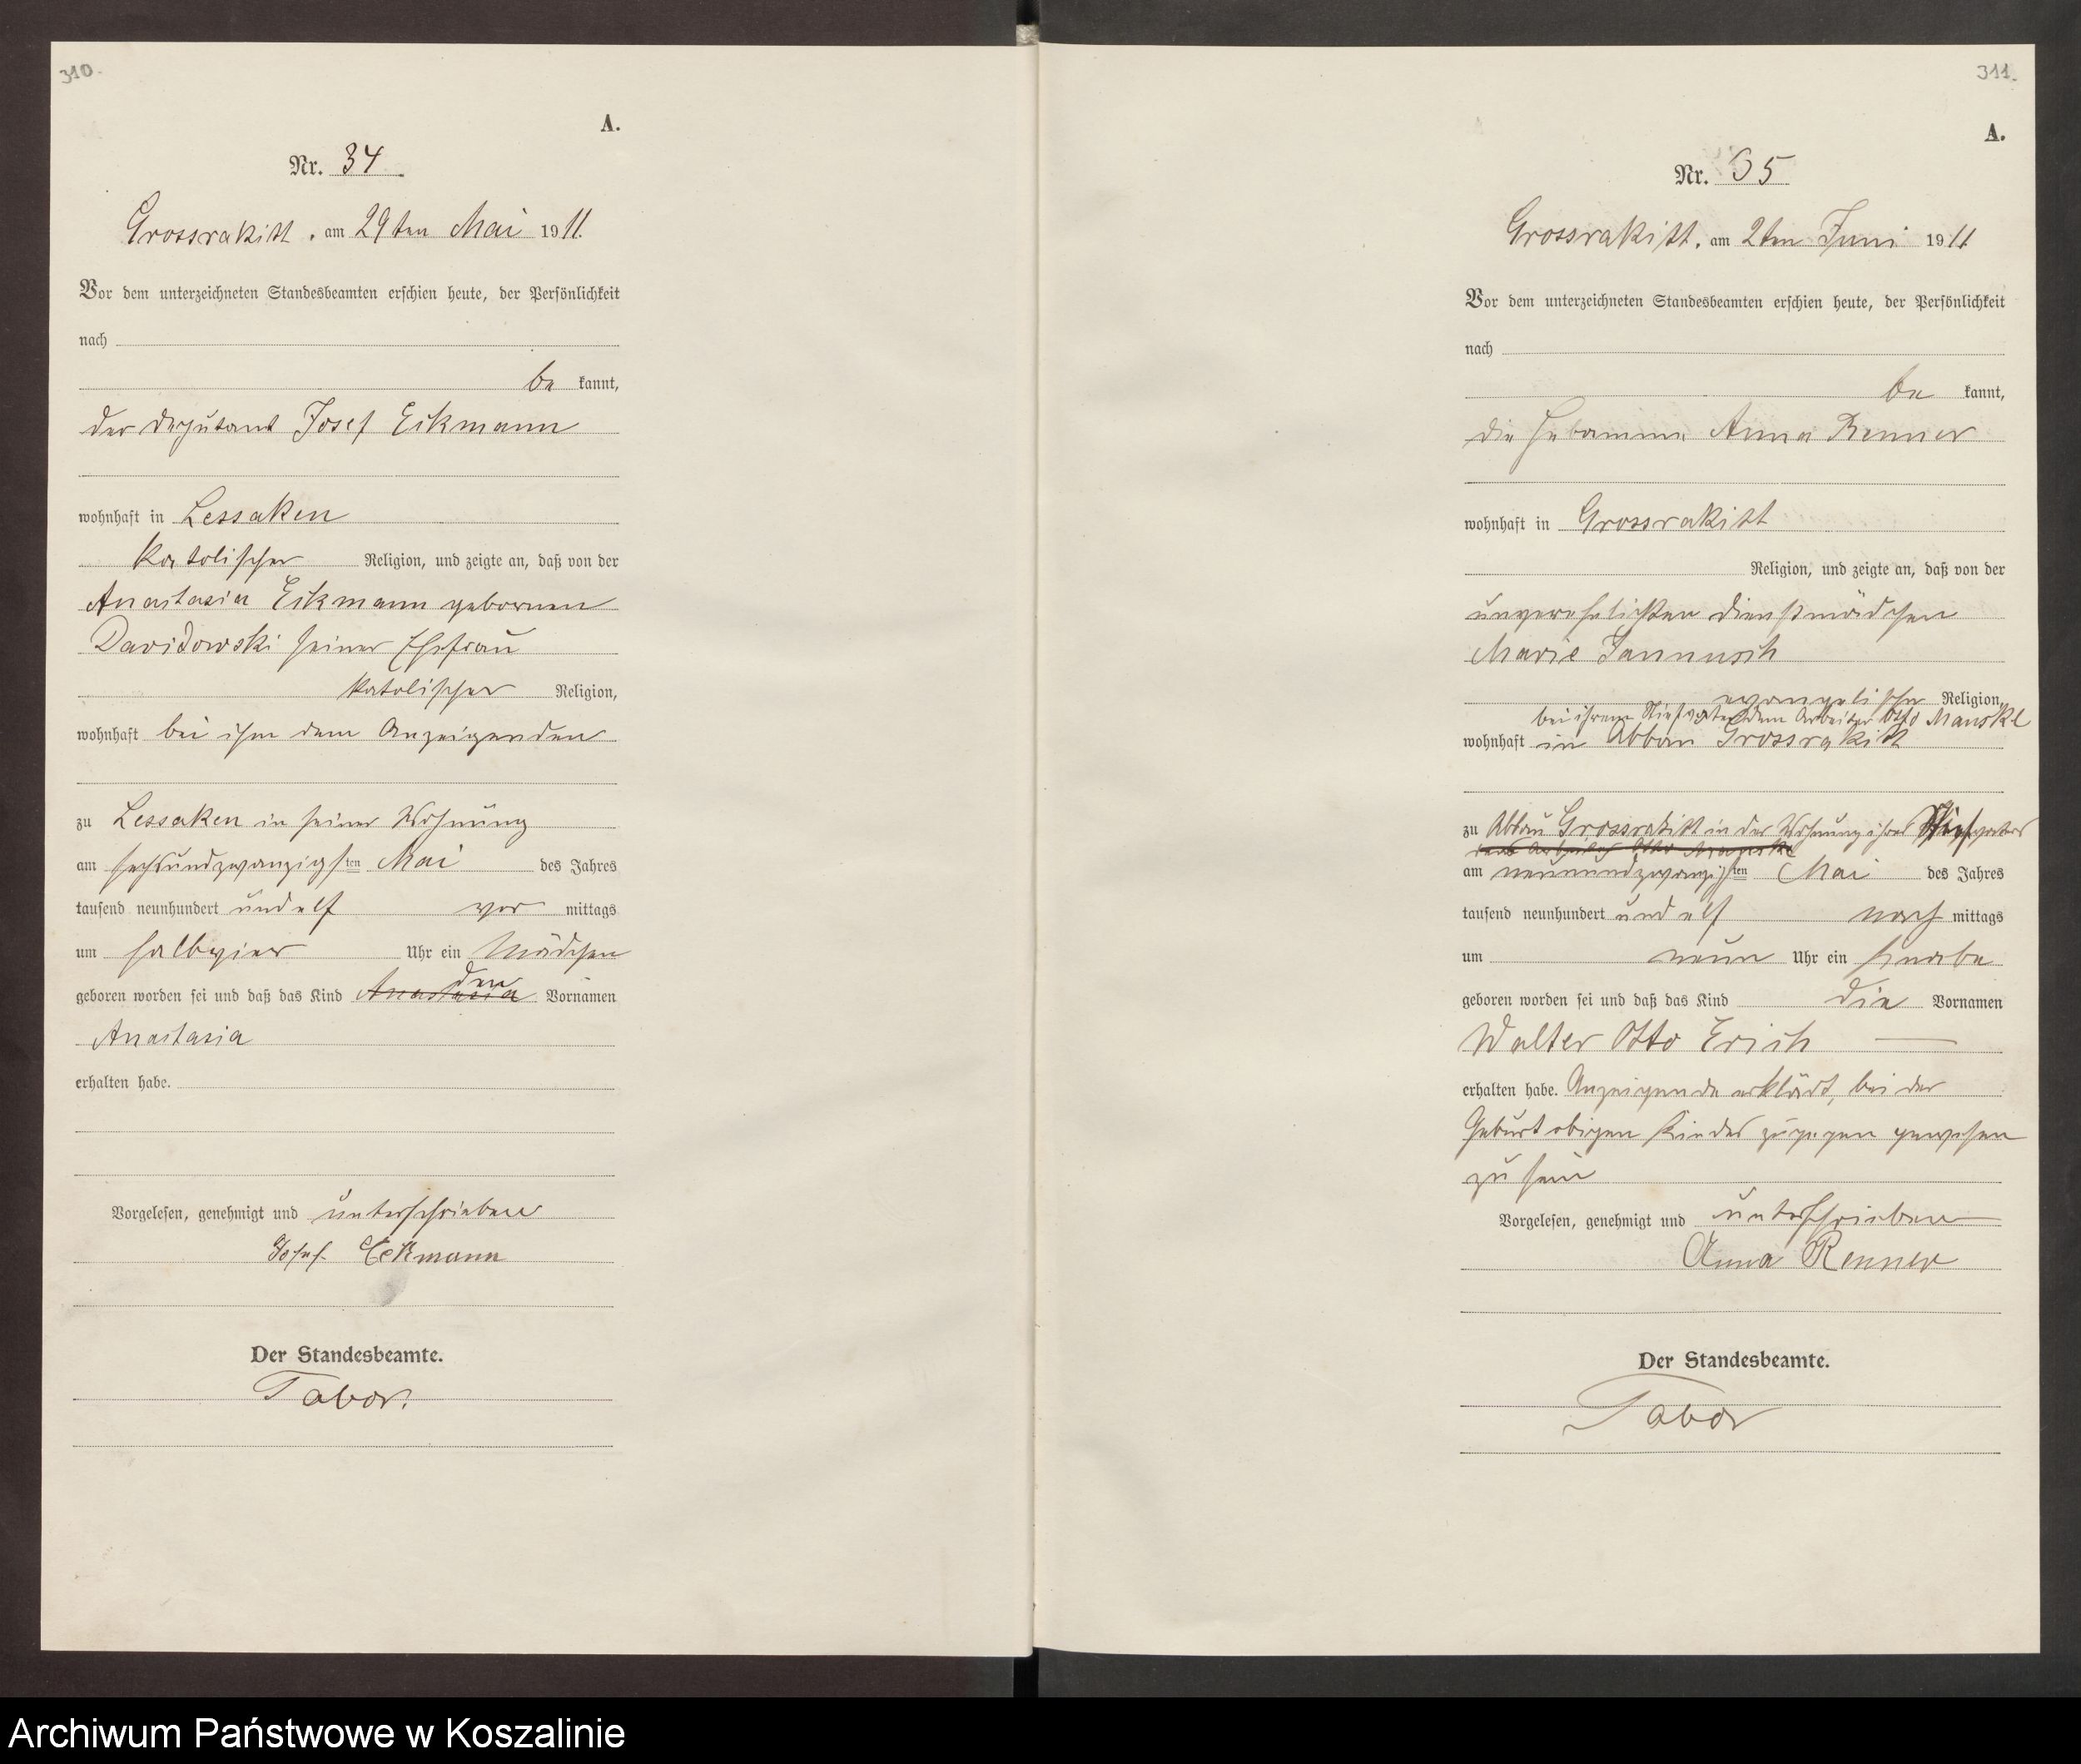 310.
A.
Nr. 34
Grossrakitt, am 29ten Mai 1911.
Vor dem unterzeichneten Standesbeamten erschien heute, der Persönlichkeit
nach
be kannt,
der Deputant Josef Eikmann
wohnhaft in Lessaken
katolischer Religion, und zeigte an, daß von der
Anastasia Eikmann gebornen
Davidowski seiner Ehefrau
katolischer Religion,
wohnhaft bei ihm dem Anzeigenden
zu Lessaken in seiner Wohnung
am sechsundzwanzigsten Mai des Jahres
tausend neunhundert und elf vor mittags
um halbvier Uhr ein Mädchen
den
geboren worden sei und daß das Kind Anastasia Vornamen
Anastasia
erhalten habe.
Vorgelesen, genehmigt und unterschrieben
Josef Eckmann
Der Standesbeamte.
Tabor.
311.
A.
Nr. 35
Grossrakitt, am 2ten Juni 1911
Vor dem unterzeichneten Standesbeamten erschien heute, der Persönlichkeit
nach
be kannt,
die Hebamme Anna Renner
wohnhaft in Grossrakitt
Religion, und zeigte an, daß von der
unverehelichten Dienstmädchen
Marie Jannusch
evangelischer Religion,
bei ihrem Stiefvater dem Arbeiter Otto Manske
wohnhaft in Abbau Grossrakitt
zu Abbau Grossrakitt in der Wohnung ihres Stiefvaters
des Arbeiters Otto Manske
am neunundzwanzigsten Mai des Jahres
tausend neunhundert und elf nach mittags
um neun Uhr ein Knabe
geboren worden sei und daß das Kind die Vornamen
Walter Otto Erich
erhalten habe. Anzeigende erklärt, bei der
Geburt obigen Kindes zugegen gewesen
zu sein
Vorgelesen, genehmigt und unterschrieben
Anna Renner
Der Standesbeamte.
Tabor
Archiwum Państwowe w Koszalinie